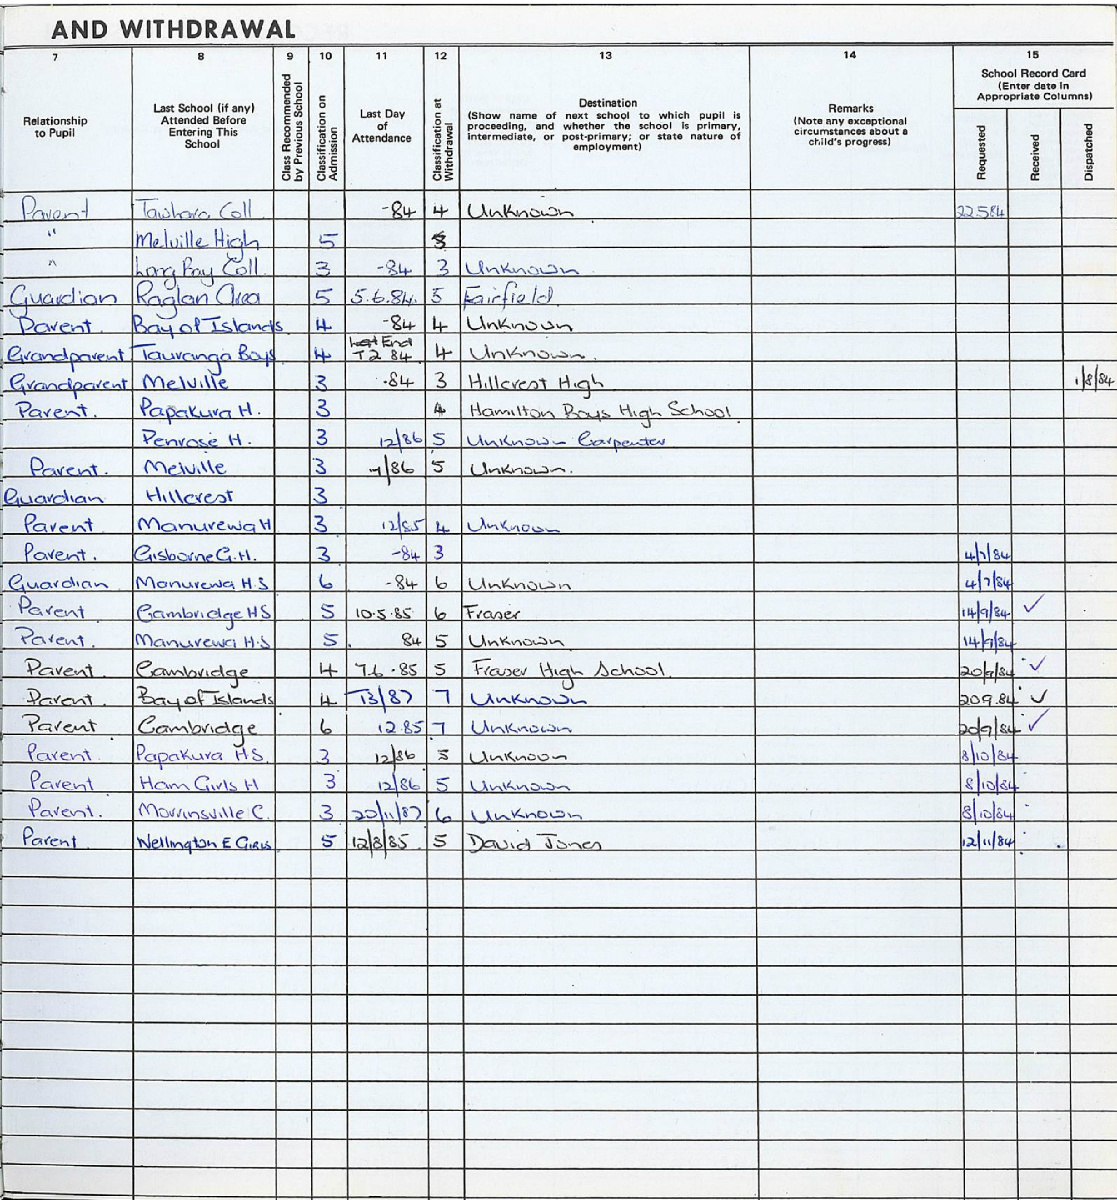 AND WITHDRAWAL
7 8 9 10 11 12 13 14 15
Relationship to Pupil
Last School (if any) Attended Before Entering This School
Class Recommended by Previous School
Classification on Admission
Last Day of Attendance
Classification at Withdrawal
Destination
(Show name of next school to which pupil is proceeding, and whether the school is primary, intermediate, or post-primary; or state nature of employment)
Remarks
(Note any exceptional circumstances about a child's progress)
School Record Card
(Enter date in Appropriate Columns)
Requested Received Dispatched
Parent Tauhara Coll -84 4 Unknown 22.5.84
" Melville High 5
" Long Bay Coll 3 -84 3 Unknown
Guardian Raglan Area 5 5.6.84. 5 Fairfield.
Parent. Bay of Islands 4 -84 4 Unknown
Grandparent Tauranga Boys 4 End T2 84 4 Unknown.
Grandparent Melville 3 -84 3 Hillcrest High 1/8/84
Parent. Papakura H. 3 4 Hamilton Boys High School
Penrose H. 3 12/86 5 Unknown Carpenter
Parent. Melville 3 /86 5 Unknown.
Guardian Hillcrest 3
Parent Manurewa H 3 12/85 4 Unknown
Parent. Gisborne G.H. 3 -84 3 4/7/84
Guardian Manurewa H.S 6 -84 6 Unknown 4/7/84
Parent Cambridge HS 5 10.5.85 6 Fraser 14/9/84 ✓
Parent. Manurewa H.S 5. 84 5 Unknown 14/9/84
Parent. Cambridge 4 7.6.85 5 Fraser High School. 20/9/84 ✓
Parent. Bay of Islands 4 T3/87 7 Unknown 20.9.84 ✓
Parent Cambridge 6 12.85 7 Unknown 20/9/84 ✓
Parent. Papakura HS. 3 12/86 5 Unknown 8/10/84
Parent. Ham Girls H 3 12/86 5 Unknown 8/10/84
Parent. Morrinsville C. 3 20/11/87 6 Unknown 8/10/84
Parent Wellington E Girls 5 12/8/85 5 David Jones 12/11/84